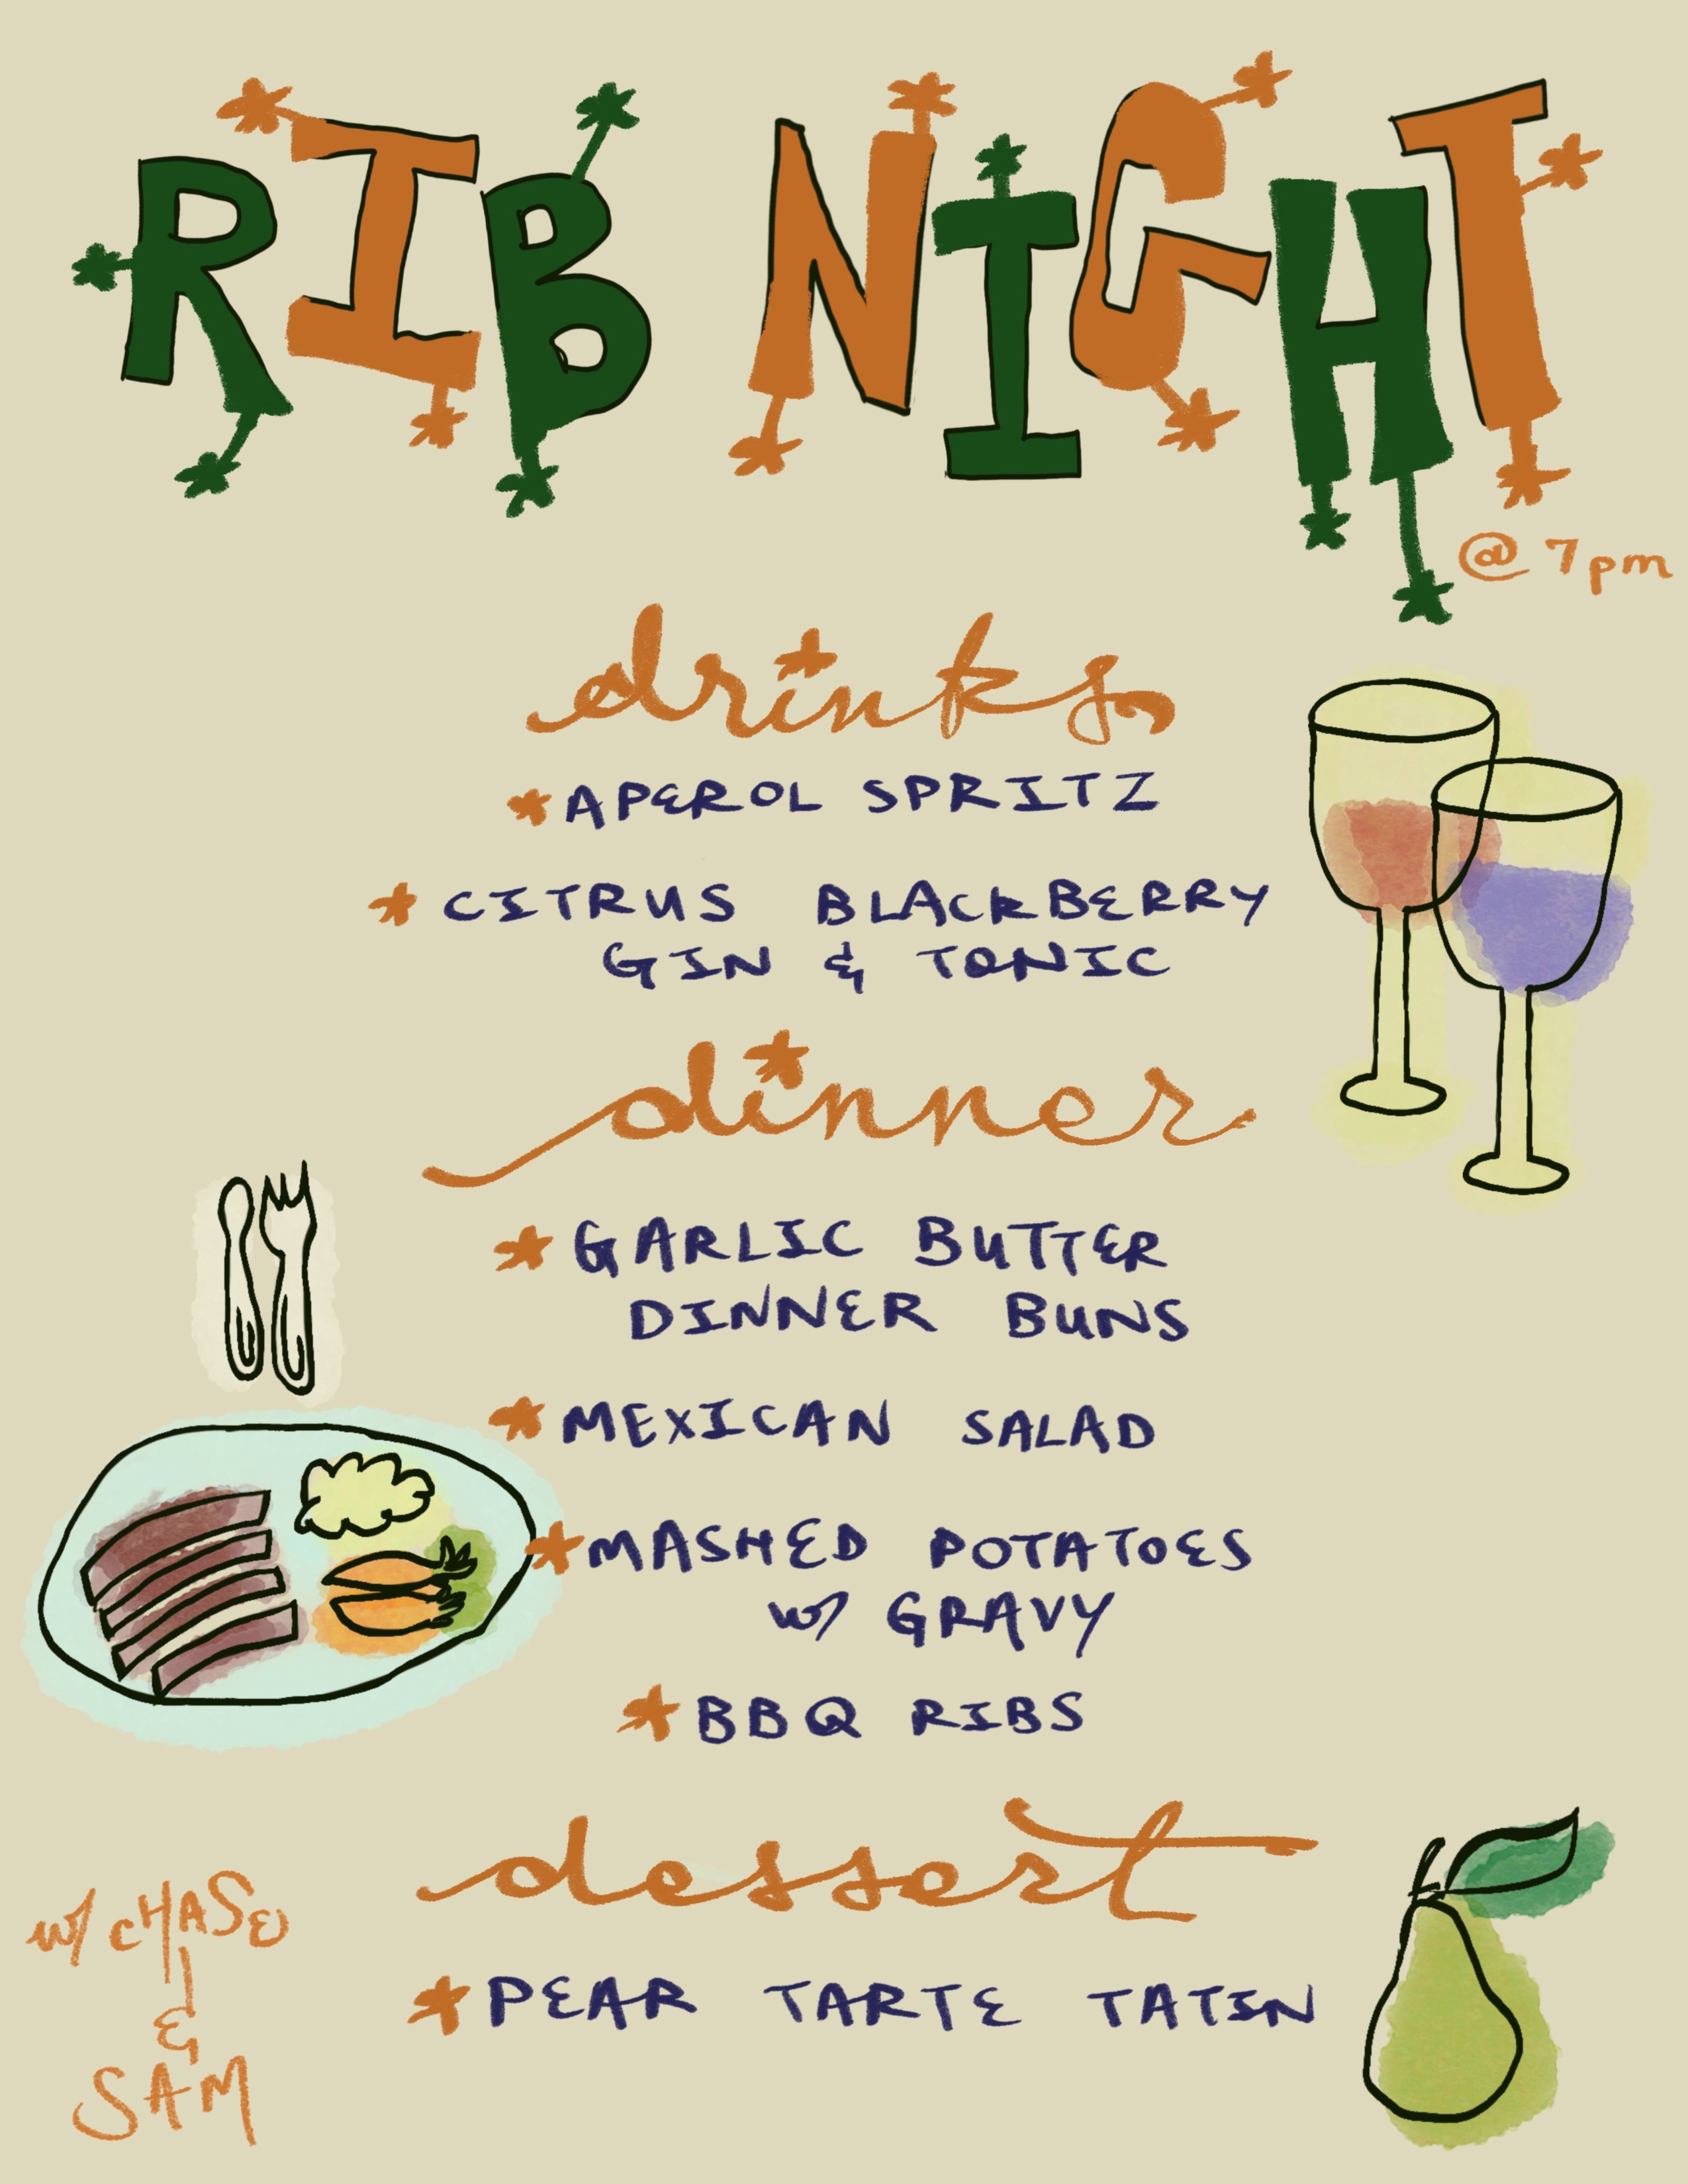 RIB NIGHT
@ 7pm
drinks
APEROL SPRITZ
CITRUS BLACKBERRY
GIN & TONIC
dinner
GARLIC BUTTER
DINNER BUNS
MEXICAN SALAD
MASHED POTATOES
W/ GRAVY
BBQ RIBS
dessert
PEAR TARTE TATIN
W/ CHASE
&
SAM